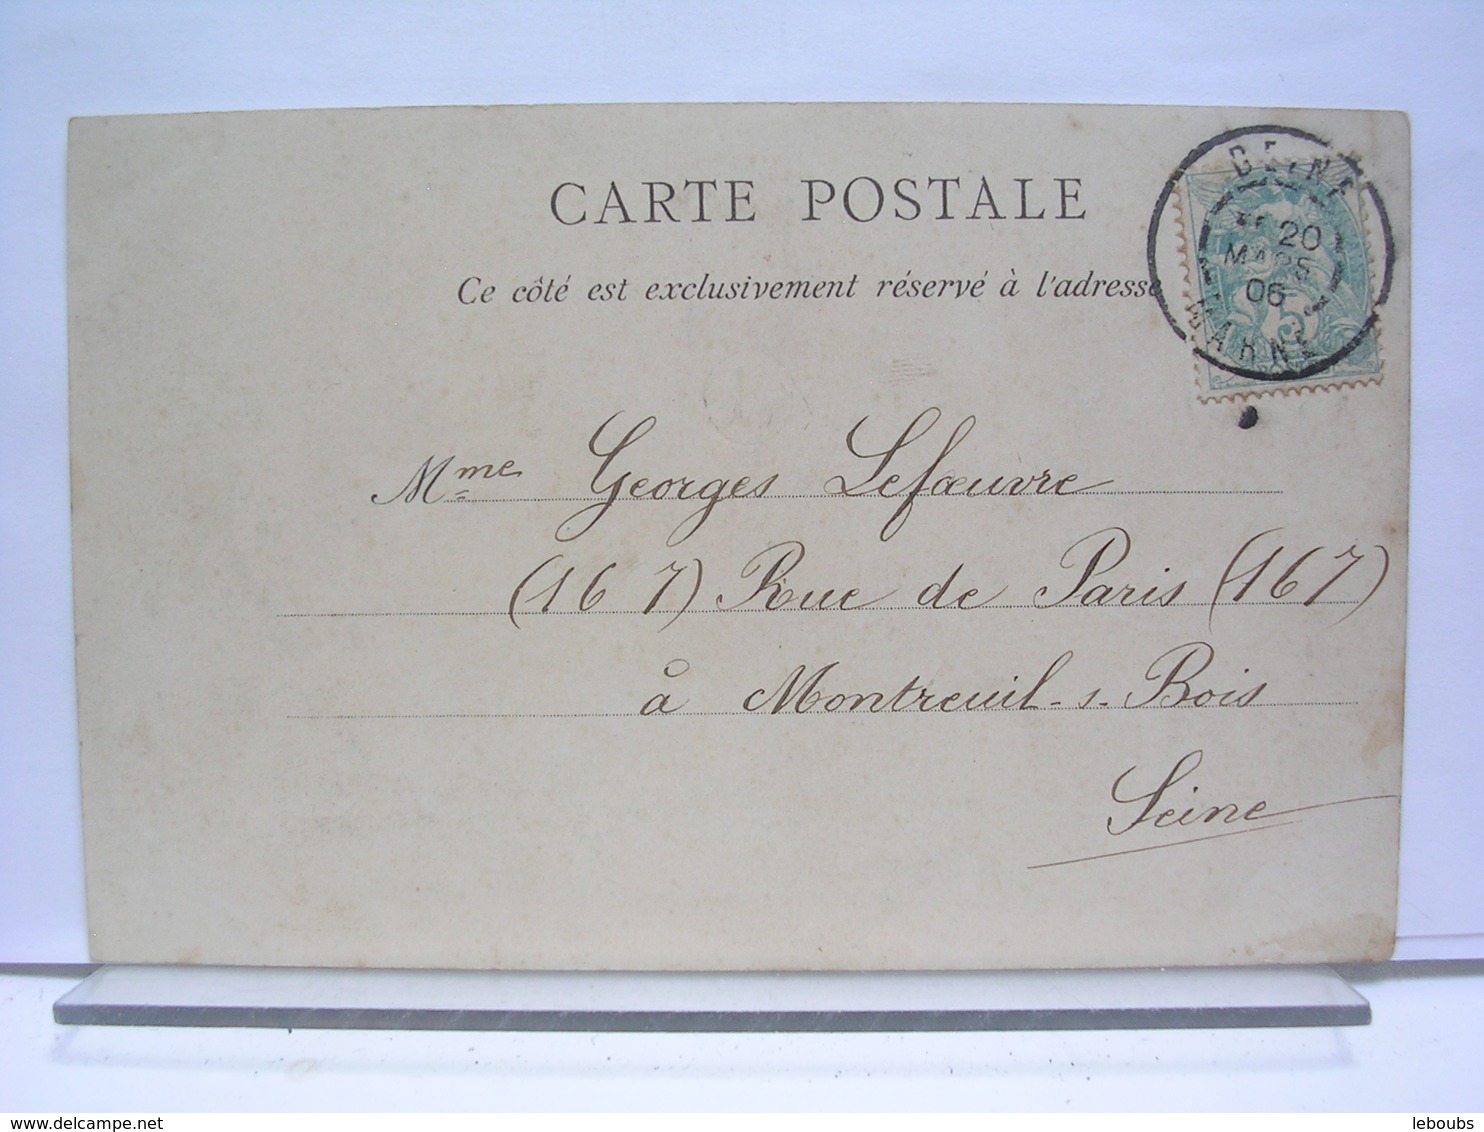 CARTE POSTALE
Ce côté est exclusivement réservé à l'adresse
20
MARS
06
MARNE
5
Mme Georges Lefœuvre
(167) Rue de Paris (167)
à Montreuil-s-Bois
Seine
delcampe.net
leboubs